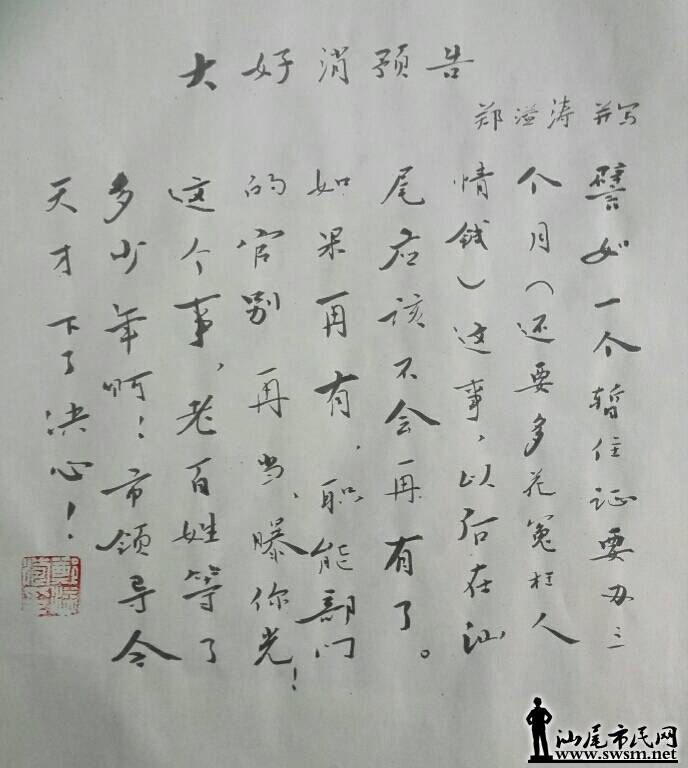 大好消预告
郑溢涛 并写
譬如一个暂住证要办三
个月（还要多花冤枉人
情钱）这事，以后在汕
尾应该不会再有了。
如果再有，职能部门
的官别再当，曝你光！
这个事，老百姓等了
多少年啊！市领导今
天才下了决心！
汕尾市民网
www.swsm.net